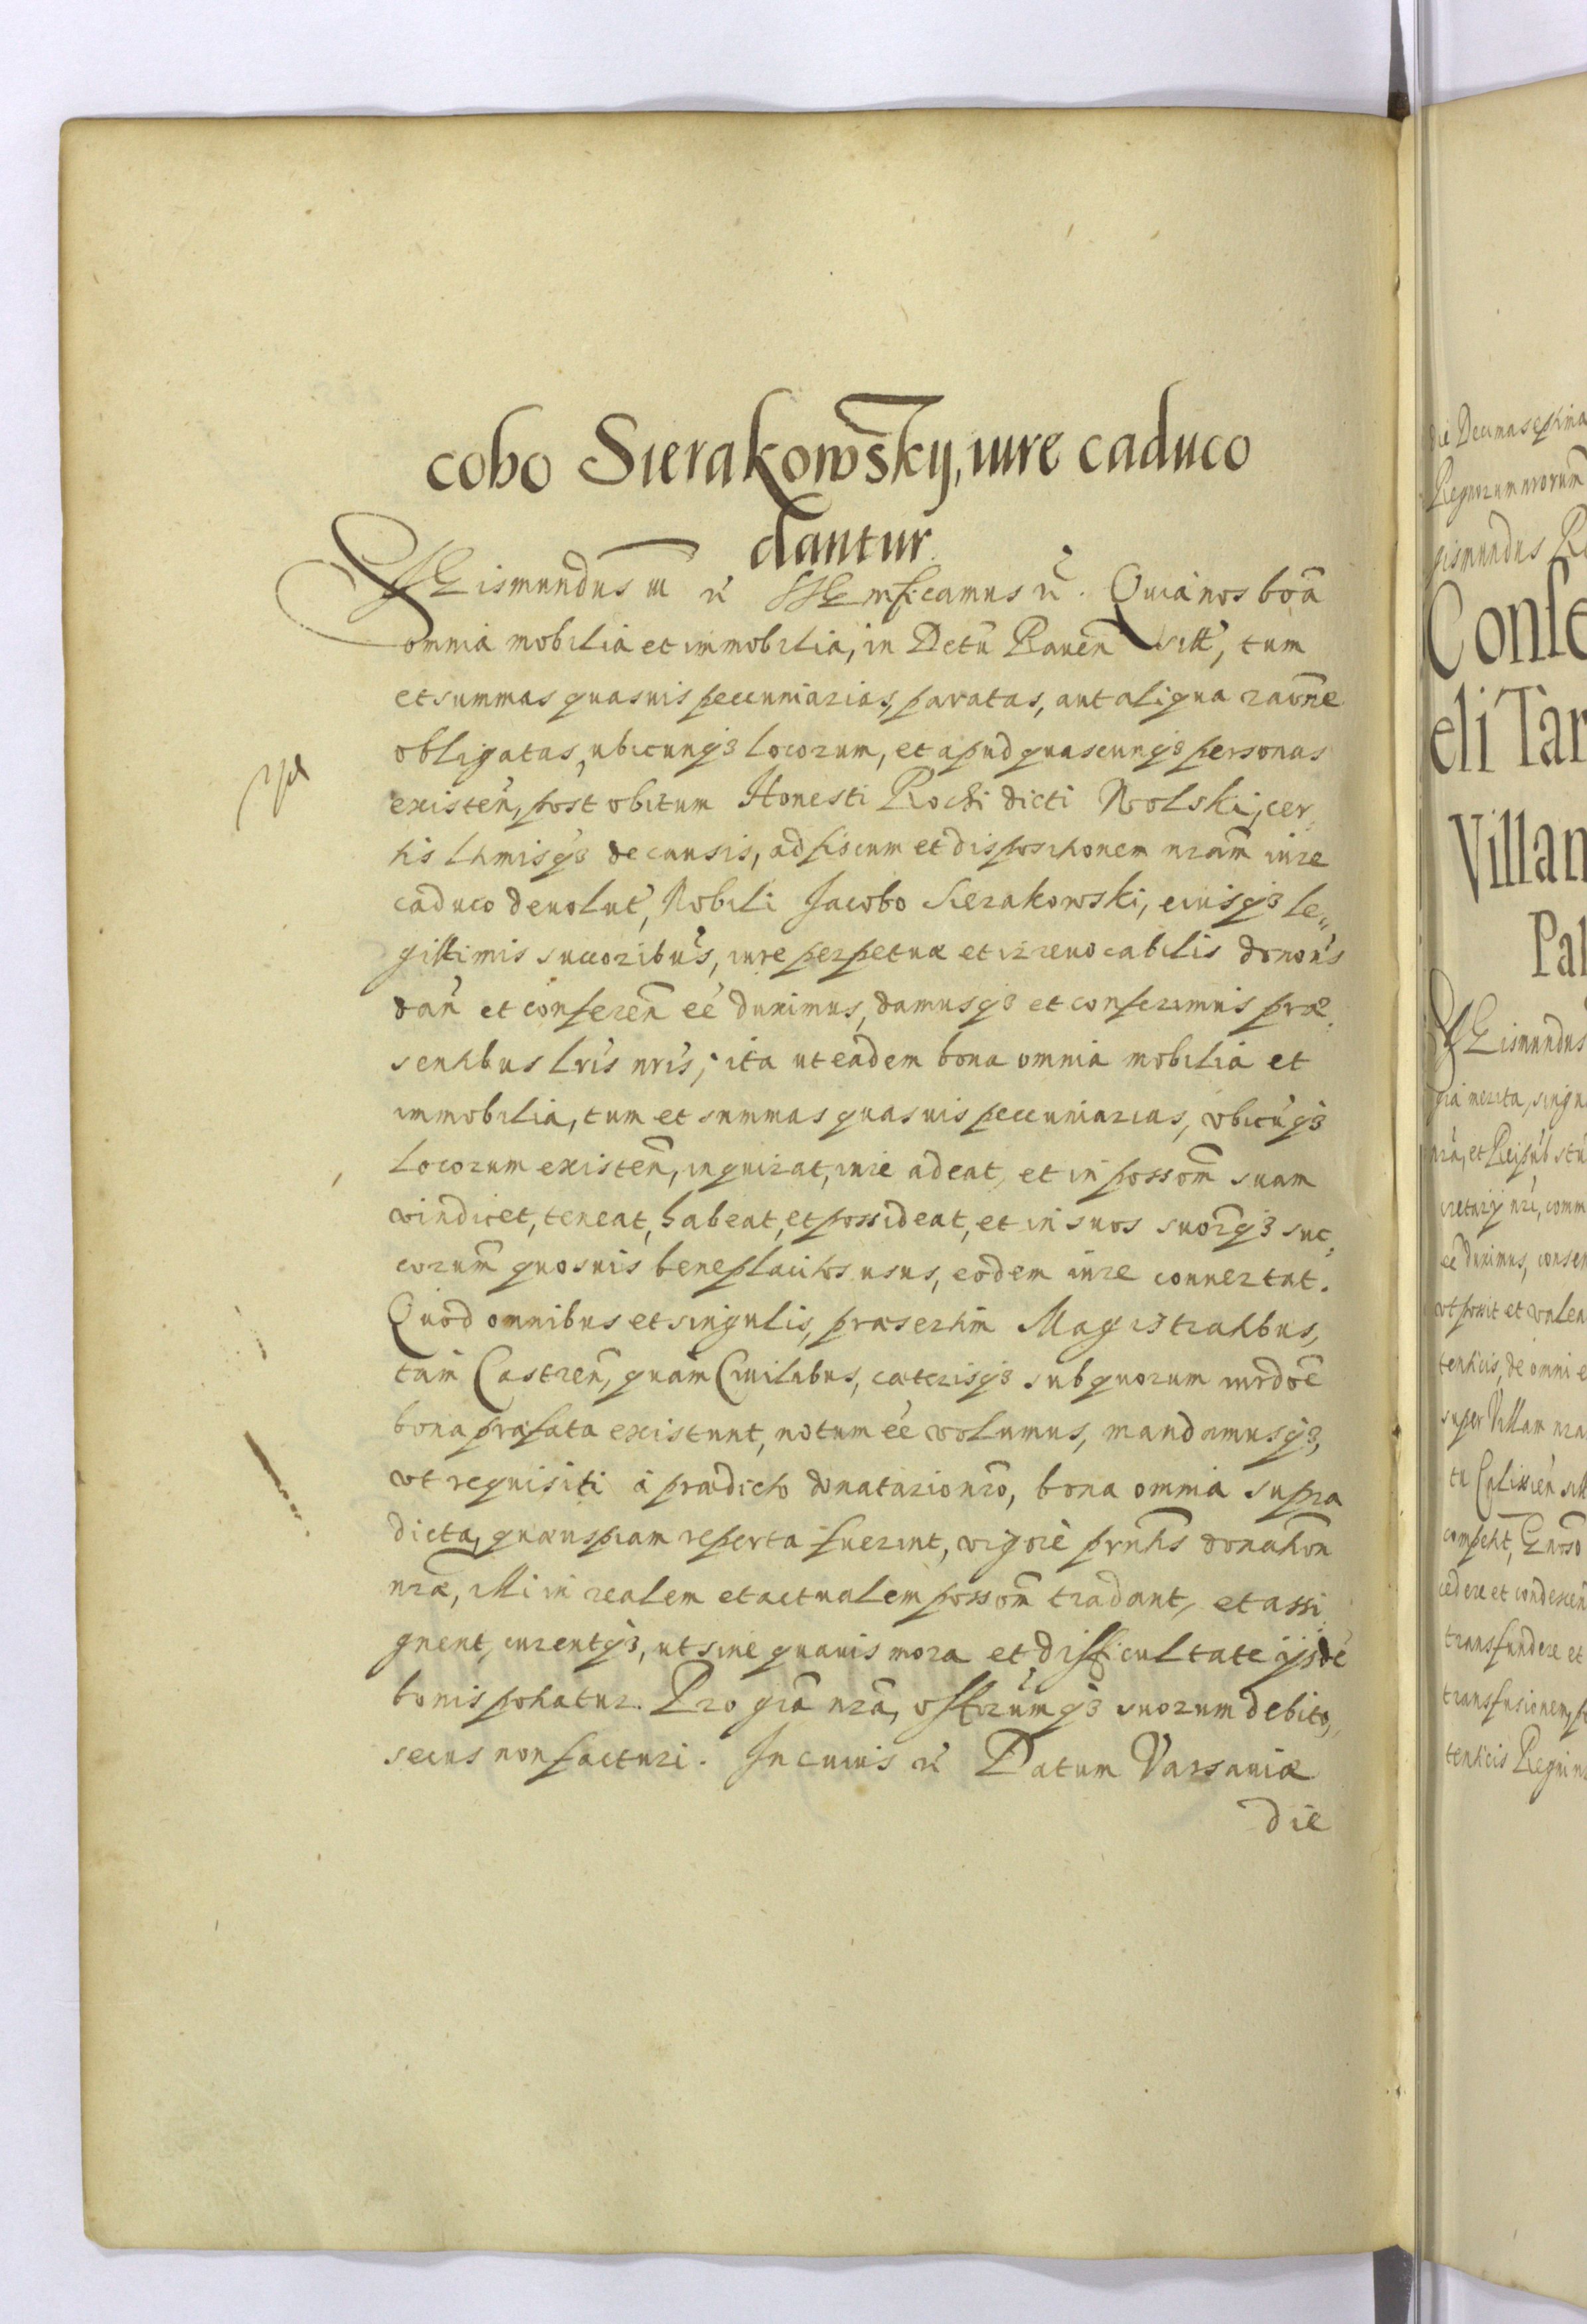 cobo Sierakowsky, iure caduco
dantur.
Sigismundus III etc Significamus etc. Quia nos bōā
omnia mobilia et immobilia, in Dctu Raueñ sitt, tum
et summas quasuis pecuniarias, paratas, aut aliqua raōne
obligatas, ubicunqȝ locorum, et apud quascunqȝ personas
existeñ, post obitum Honesti Rochi dicti Wolski, cer,
tis Ltimisqȝ de causis, ad fiscum et dispositionem nram̄ iure
caduco deuolut, Nobili Jacobo Sierakowski, eiusqȝ le„
gittimis succoribus, iure perpetuæ et irreuocabilis dononis
dan̄ et conferen̄ eē duximus, damusqȝ et conferimus præ,
sentibus Lris nris; ita ut eadem bona omnia mobilia et
immobilia, tum et summas quasuis pecuniarias, ubicuqȝ
locorum existen̄, inquirat, iure adeat, et in possom̄ suam
vindicet, teneat, habeat, et possideat, et in suos suorqȝ suc,
corum̄ quosuis beneplacitos usus, eodem iure conuertat.
Quod omnibus et singulis, præsertim Magistratibus,
tam Castren̄, quam Ciuilibus, cæterisqȝ sub quorum iurdoē
bona præfata existunt, notum eē volumus, mandamusqȝ,
ut requisiti à prædicto donatario nro, bona omnia supra
dicta, quæuspiam reperta fuerint, vigore prntis donation̄
nræ, illi in realem et actualem possom̄ tradant, et assi
gnent, curentqȝ, ut sine quauis mora et difficultate ijsdē
bonis potiatur. Pro gra nra, offorumqȝ suorum debito,
secus non facturi. In cuius etc Datum Varsauiæ
die
die Decima septima
Regnorum nrorum
gismundus R
Conse
eli Tar
Villam
Pal
Sigismundus
merita, singu
nra, et Reipub
cretarij nri, comm
eē duximus, consen
ut possit et valea
de omni e
super Villam nra
te Calissien̄ sitt
cedere et condescen
transfundere et
transfusionem
Regni n